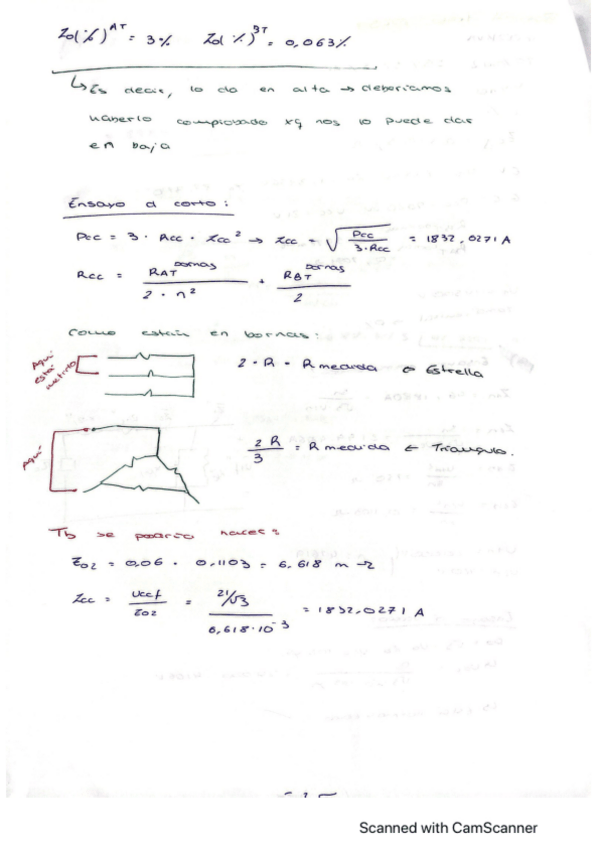 Zo(%)^AT = 3%    Zo(%)^BT = 0,063%
↳ Es decir, lo da en alta → deberíamos
haberlo comprobado xq nos lo puede dar
en baja
Ensayo a corto:
Pcc = 3 · Rcc · Icc² → Icc = √(Pcc / 3·Rcc) = 1832,0271 A
Rcc = RAT^bornas / 2·n² + RBT^bornas / 2
Como están en bornas:
Aquí está metido
2 · R = R medida ← Estrella
Aquí
2R/3 = R medida ← Triángulo.
Tb se podría hacer:
Zo2 = 0,06 · 0,1103 = 6,618 m Ω
Icc = Uccf / Zo2 = 21/√3 / 6,618·10^-3 = 1832,0271 A
Scanned with CamScanner